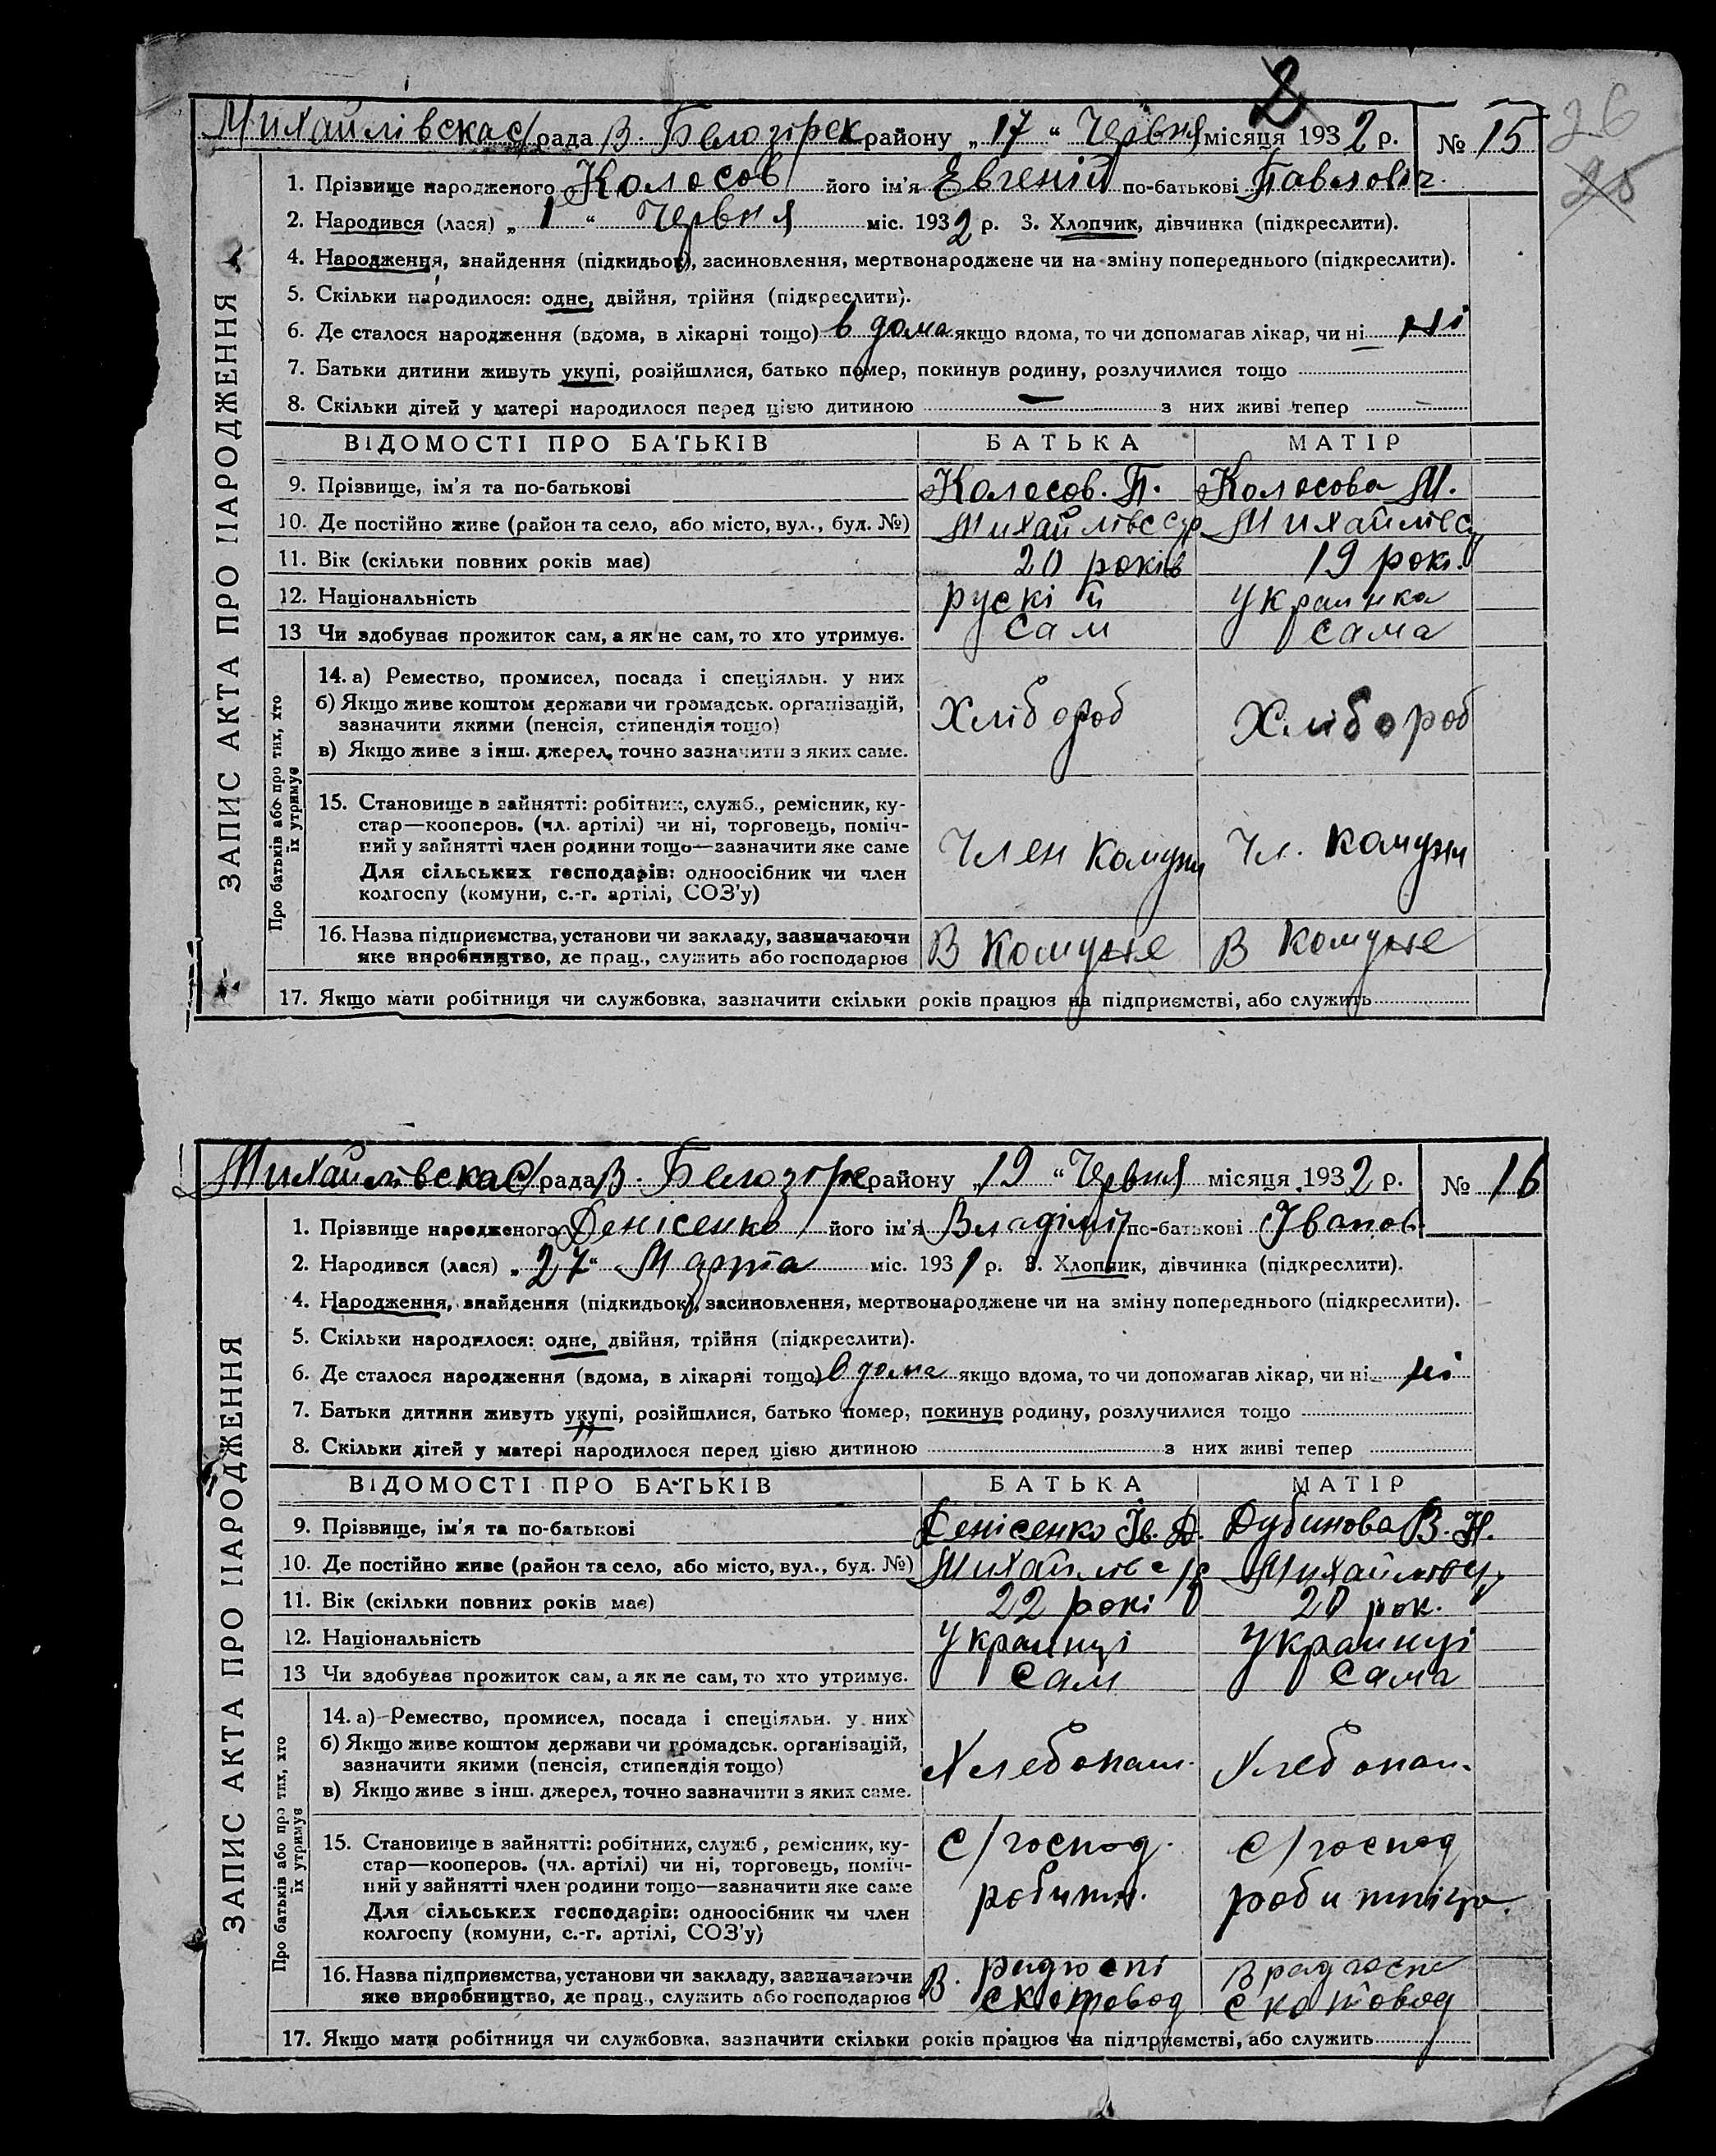 2
26
25
Михайлівская с/рада В. Белозірск району „17“ Червня місяця 1932 р. № 15
ЗАПИС АКТА ПРО НАРОДЖЕННЯ
1. Прізвище народженого Колосов його ім'я Евгеній по-батькові Павлович
2. Народився (лася) „1“ Червня міс. 1932 р. 3. Хлопчик, дівчинка (підкреслити).
4. Народження, знайдення (підкидьок), засиновлення, мертвонароджене чи на зміну попереднього (підкреслити).
5. Скільки народилося: одне, двійня, трійня (підкреслити).
6. Де сталося народження (вдома, в лікарні тощо) в дома якщо вдома, то чи допомагав лікар, чи ні ні
7. Батьки дитини живуть укупі, розійшлися, батько помер, покинув родину, розлучилися тощо
8. Скільки дітей у матері народилося перед цією дитиною — з них живі тепер —
ВІДОМОСТІ ПРО БАТЬКІВ БАТЬКА МАТІР
9. Прізвище, ім'я та по-батькові Колосов. П. Колосова М.
10. Де постійно живе (район та село, або місто, вул., буд. №) Михайлівс Михайлівс
11. Вік (скільки повних років має) 20 років 19 рокі.
12. Національність рускій Украинка
13 Чи здобуває прожиток сам, а як не сам, то хто утримує. Сам Сама
Про батьків або про тих, хто
їх утримує
14. а) Ремество, промисел, посада і спеціяльн. у них
б) Якщо живе коштом держави чи громадськ. організацій,
зазначити якими (пенсія, стипендія тощо) Хлібороб Хлібороб
в) Якщо живе з інш. джерел, точно зазначити з яких саме.
15. Становище в зайнятті: робітник, служб., ремісник, ку-
стар—кооперов. (чл. артілі) чи ні, торговець, поміч-
ний у зайнятті член родини тощо—зазначити яке саме Член Комуни Чл. Комуни
Для сільських господарів: одноосібник чи член
колгоспу (комуни, с.-г. артілі, СОЗ'у)
16. Назва підприємства, установи чи закладу, зазначаючи
яке виробництво, де прац., служить або господарює В Комуне В Комуне
17. Якщо мати робітниця чи службовка, зазначити скільки років працює на підприємстві, або служить
Михайлівская с/рада В. Белозірс району „19“ Червня місяця 1932 р. № 16
ЗАПИС АКТА ПРО НАРОДЖЕННЯ
1. Прізвище народженого Денісенко його ім'я Владімір по-батькові Іванов
2. Народився (лася) „27“ Марта міс. 1931 р. 3. Хлопчик, дівчинка (підкреслити).
4. Народження, знайдення (підкидьок), засиновлення, мертвонароджене чи на зміну попереднього (підкреслити).
5. Скільки народилося: одне, двійня, трійня (підкреслити).
6. Де сталося народження (вдома, в лікарні тощо) в дома якщо вдома, то чи допомагав лікар, чи ні ні
7. Батьки дитини живуть укупі, розійшлися, батько помер, покинув родину, розлучилися тощо
8. Скільки дітей у матері народилося перед цією дитиною з них живі тепер
ВІДОМОСТІ ПРО БАТЬКІВ БАТЬКА МАТІР
9. Прізвище, ім'я та по-батькові Денісенко Ів. Д. Дубинова В. Н.
10. Де постійно живе (район та село, або місто, вул., буд. №) Михайлівс Михайлівс
11. Вік (скільки повних років має) 22 рокі 20 рок.
12. Національність Украинці Украинці
13 Чи здобуває прожиток сам, а як не сам, то хто утримує. Сам Сама
Про батьків або про тих, хто
їх утримує
14. а) Ремество, промисел, посада і спеціяльн. у них
б) Якщо живе коштом держави чи громадськ. організацій,
зазначити якими (пенсія, стипендія тощо) Хлебопаш. Хлебопаш.
в) Якщо живе з інш. джерел, точно зазначити з яких саме.
15. Становище в зайнятті: робітник, служб., ремісник, ку- С/господ. С/господ
стар—кооперов. (чл. артілі) чи ні, торговець, поміч-
ний у зайнятті член родини тощо—зазначити яке саме робитн. робитніца.
Для сільських господарів: одноосібник чи член
колгоспу (комуни, с.-г. артілі, СОЗ'у)
16. Назва підприємства, установи чи закладу, зазначаючи В. радгоспі В радгоспе
яке виробництво, де прац., служить або господарює Скотовод Скотовод
17. Якщо мати робітниця чи службовка, зазначити скільки років працює на підприємстві, або служить